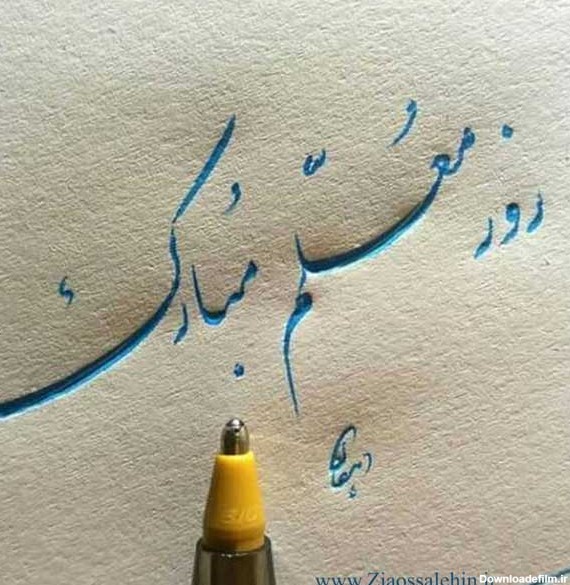 روز معلّم مبارک
دهقان
316
www.Ziaossalehin.i
Downloadefilm.ir